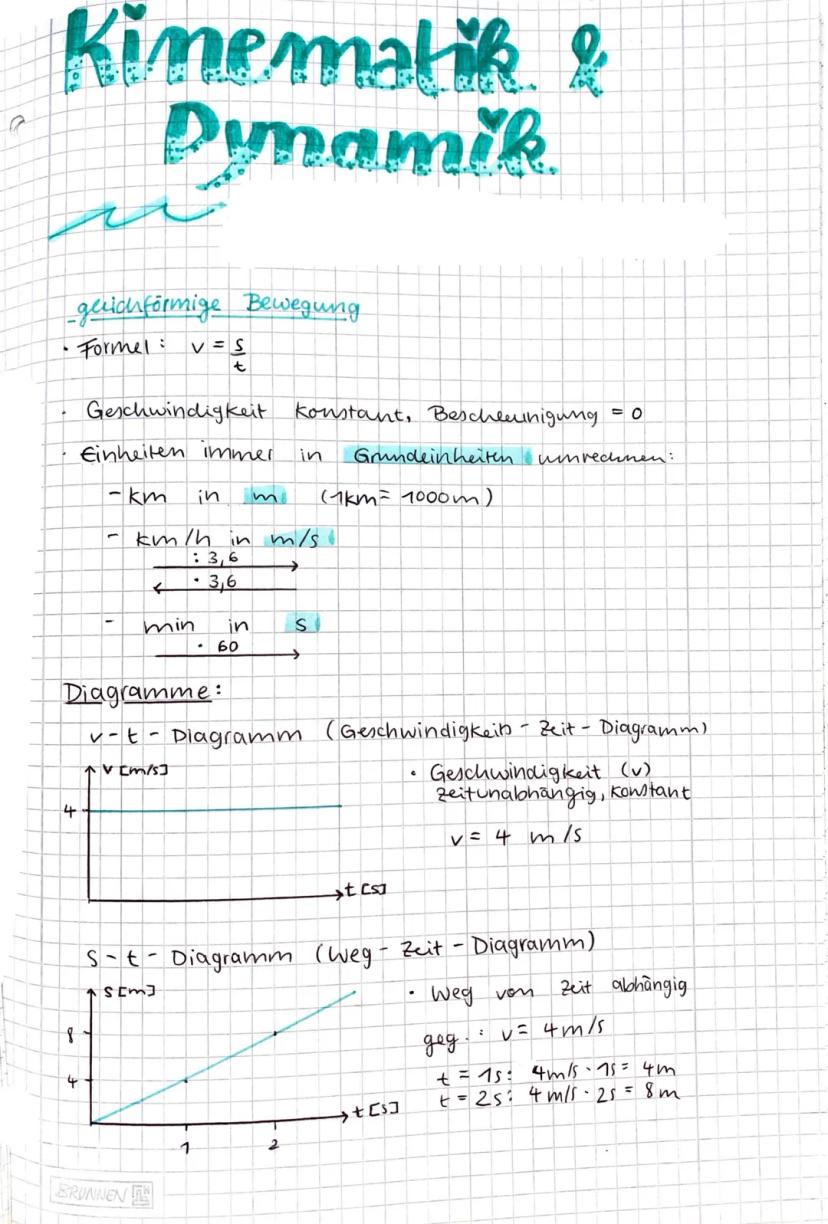 Kinematik &
Dynamik
gleichförmige Bewegung
· Formel: v = s/t
· Geschwindigkeit konstant, Bescheunigung = 0
· Einheiten immer in Grundeinheiten umrechnen:
- km in m (1km = 1000m)
- km/h in m/s
: 3,6
· 3,6
- min in s
· 60
Diagramme:
v-t-Diagramm (Geschwindigkeits-Zeit-Diagramm)
v [m/s]
4
t [s]
· Geschwindigkeit (v)
zeitunabhängig, konstant
v = 4 m/s
s-t-Diagramm (Weg-Zeit-Diagramm)
s [m]
8
4
t [s]
1 2
· Weg von Zeit abhängig
geg.: v = 4m/s
t = 1s: 4m/s · 1s = 4m
t = 2s: 4m/s · 2s = 8m
BRUNNEN